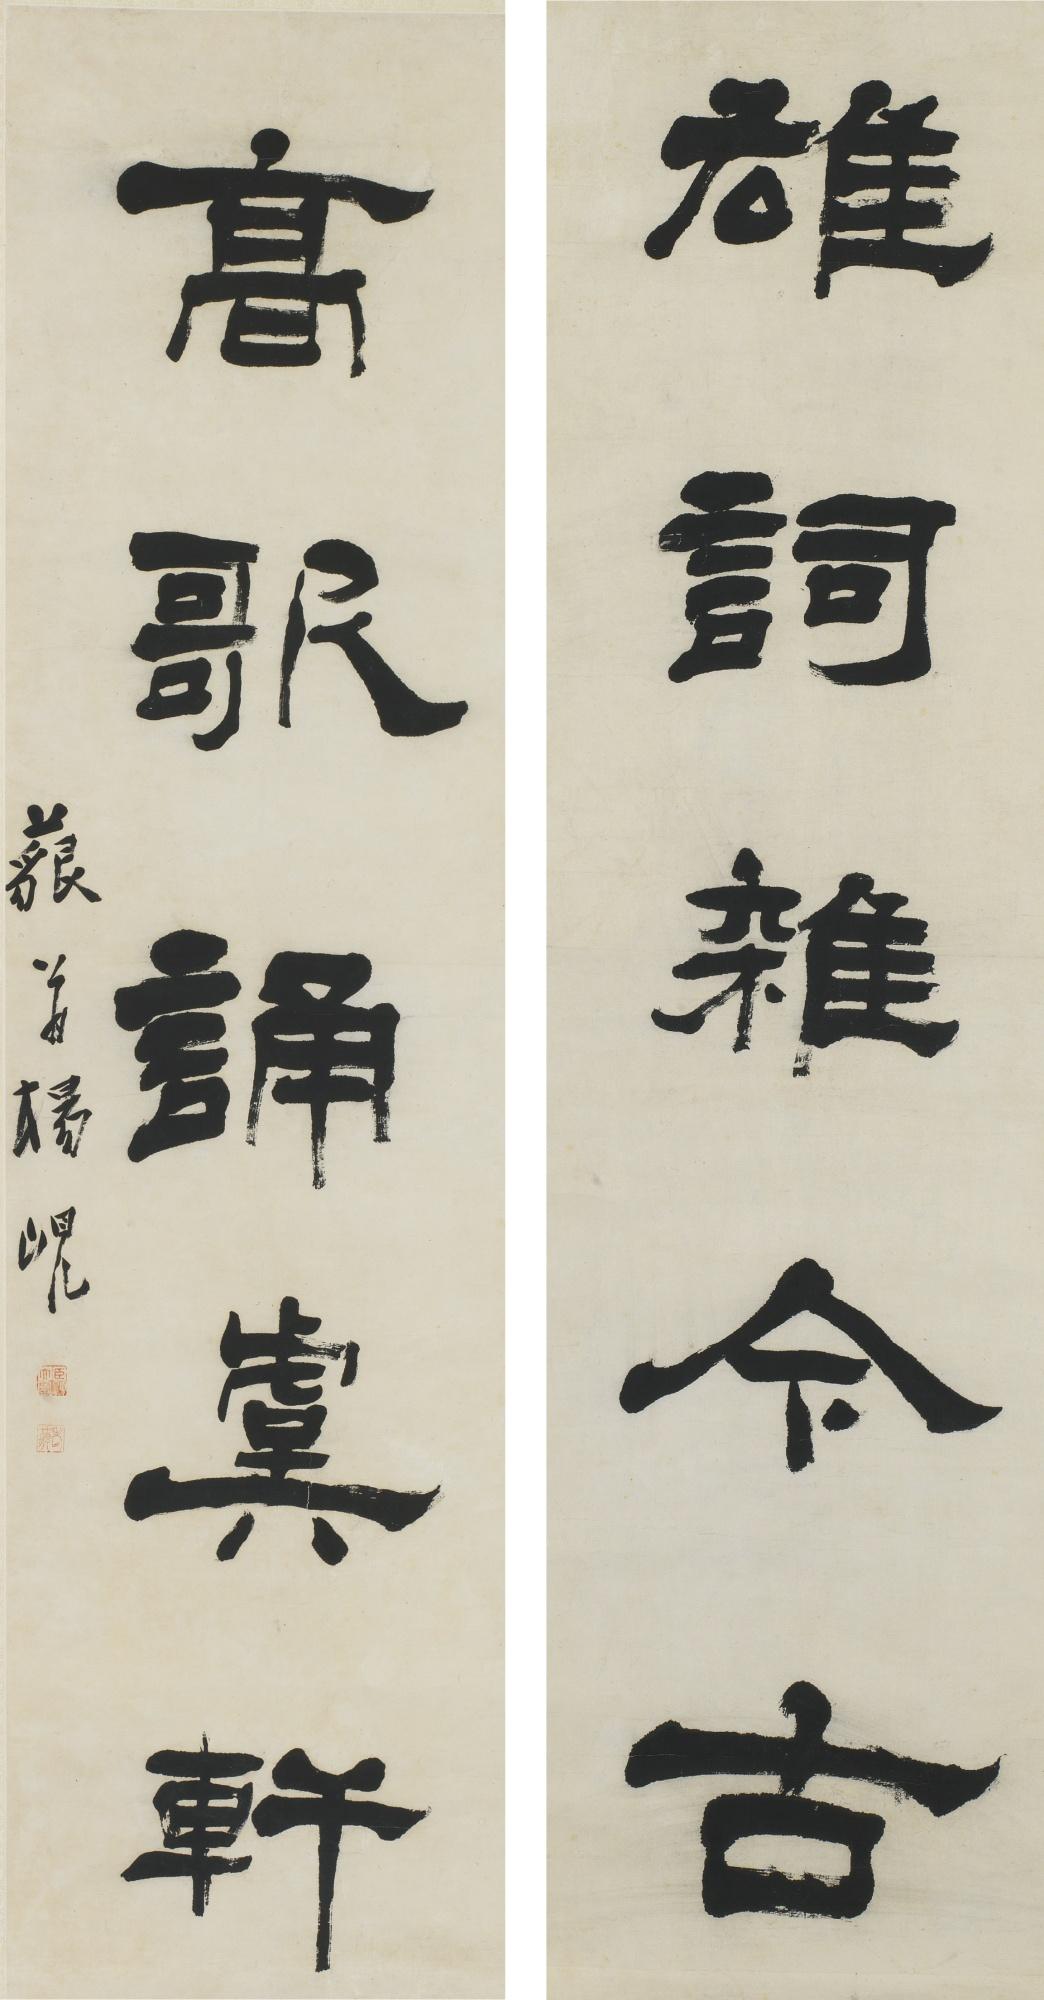 雄詞雜今古
高歌誦虞軒
藐翁楊峴